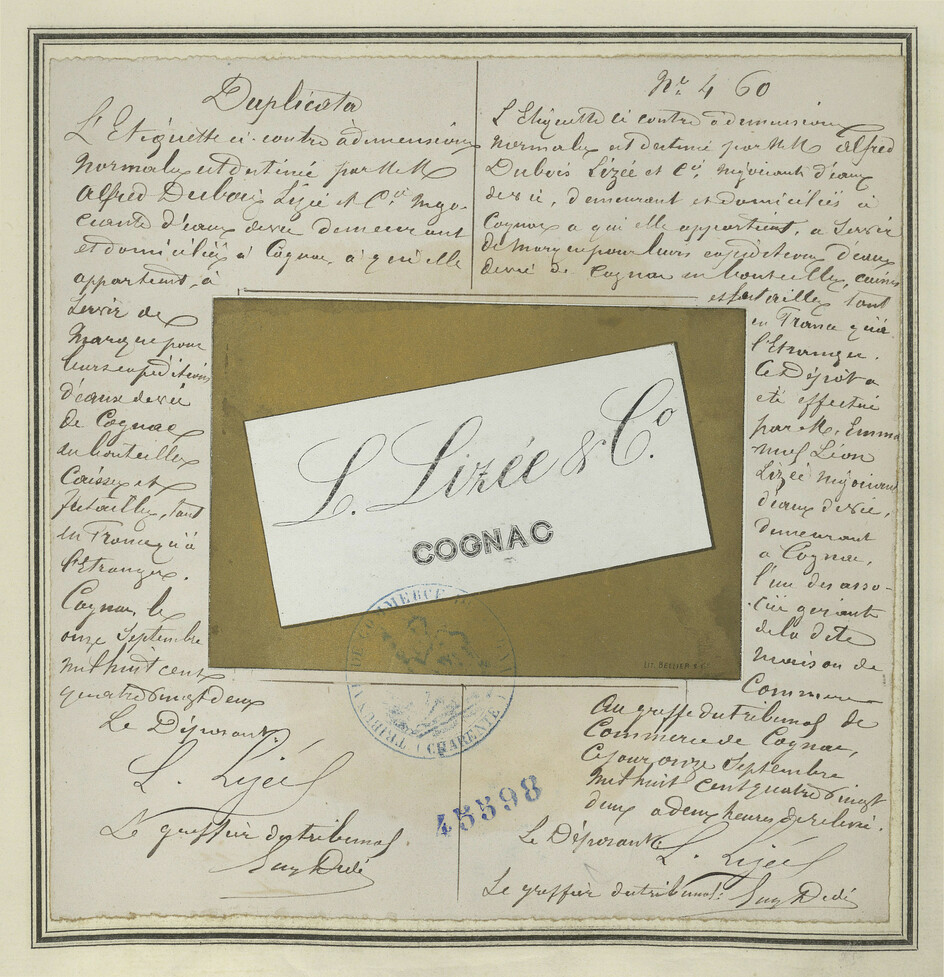 Duplicata
L'Etiquette ci-contre à dimensions
normales est destinée par MM
Alfred Dubois Lizée et Cie Négo-
ciants d'eaux devie demeurant
et domiciliés à Cognac, à qui elle
appartient, à
servir de
Marque pour
leurs expéditions
d'eaux devie
de Cognac
en bouteilles
Caisses et
futailles, tant
en France qu'à
l'Etranger.
Cognac, le
onze Septembre
mil huit cent
quatre vingt deux
Le Déposant,
L. Lizée
Le greffier du tribunal.
Nº 460
L'Etiquette ci contre à dimensions
normales est destinée par MM Alfred
Dubois Lizée et Cie, négociants d'eaux
devie, demeurant et domiciliés à
Cognac à qui elle appartient, à servir
de marque pour leurs expéditions d'eaux
devie de Cognac en bouteilles, caisses
et futailles tant
en France qu'à
l'Etranger.
Ce Dépôt a
été effectué
par M. Emma
nuel Léon
Lizée négociant
d'eaux devie,
demeurant
à Cognac,
l'un des asso-
ciés gérants
de la dite
maison de
Commerce
Au greffe du tribunal de
Commerce de Cognac,
Ce jour onze Septembre
mil huit cent quatre vingt
deux à deux heures de relevée.
Le Déposant
L. Lizée
Le greffier du tribunal.
L. Lizée & Co.
COGNAC
TRIBUNAL DE COMMERCE
(CHARENTE)
45598